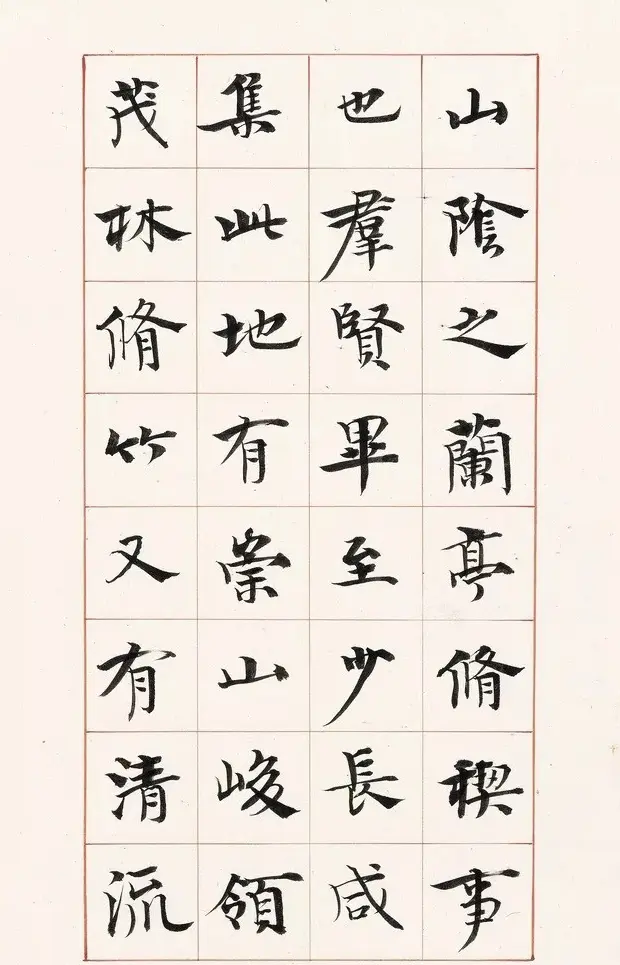 山陰之蘭亭脩稧事
也羣賢畢至少長咸
集此地有崇山峻領
茂林脩竹又有清流